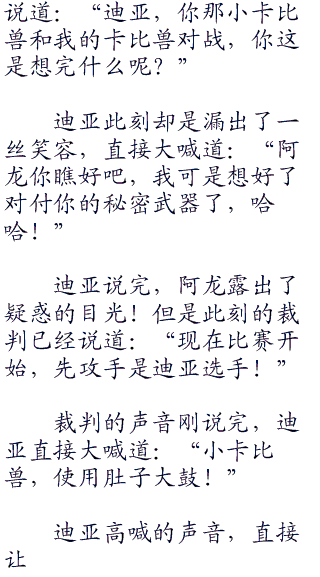 说道：“迪亚，你那小卡比
兽和我的卡比兽对战，你这
是想完什么呢？”
迪亚此刻却是漏出了一
丝笑容，直接大喊道：“阿
龙你瞧好吧，我可是想好了
对付你的秘密武器了，哈
哈！”
迪亚说完，阿龙露出了
疑惑的目光！但是此刻的裁
判已经说道：“现在比赛开
始，先攻手是迪亚选手！”
裁判的声音刚说完，迪
亚直接大喊道：“小卡比
兽，使用肚子大鼓！”
迪亚高喊的声音，直接
让